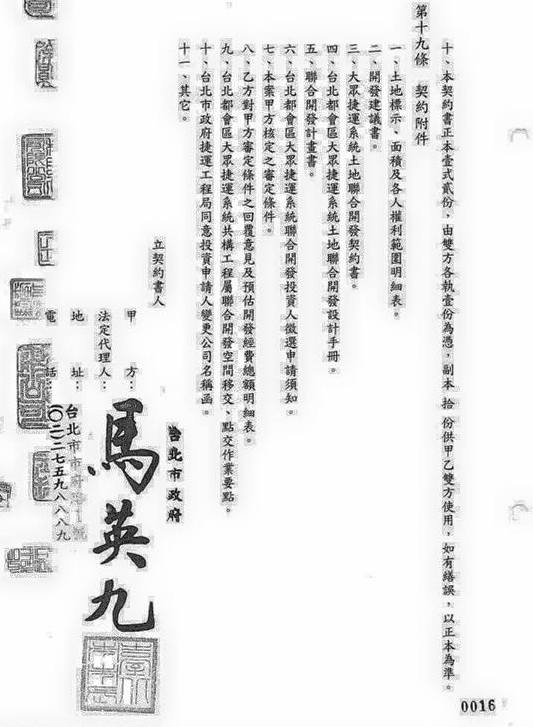 十、本契約書正本壹式貳份，由雙方各執壹份為憑，副本 拾 份供甲乙雙方使用，如有繕誤，以正本為準。
第十九條 契約附件
一、土地標示、面積及各人權利範圍明細表。
二、開發建議書。
三、大眾捷運系統土地聯合開發契約書。
四、台北都會區大眾捷運系統土地聯合開發設計手冊。
五、聯合開發計畫書。
六、台北都會區大眾捷運系統聯合開發投資人徵選申請須知。
七、本案甲方核定之審定條件。
八、乙方對甲方審定條件之回覆意見及預估開發經費總額明細表。
九、台北都會區大眾捷運系統共構工程屬聯合開發空間移交、點交作業要點。
十、台北市政府捷運工程局同意投資申請人變更公司名稱函。
十一、其它。
立契約書人
甲 方：台北市政府
法定代理人：馬英九
地 址：台北市市府路1號
電 話：(〇二)二七五九八八八九
0016